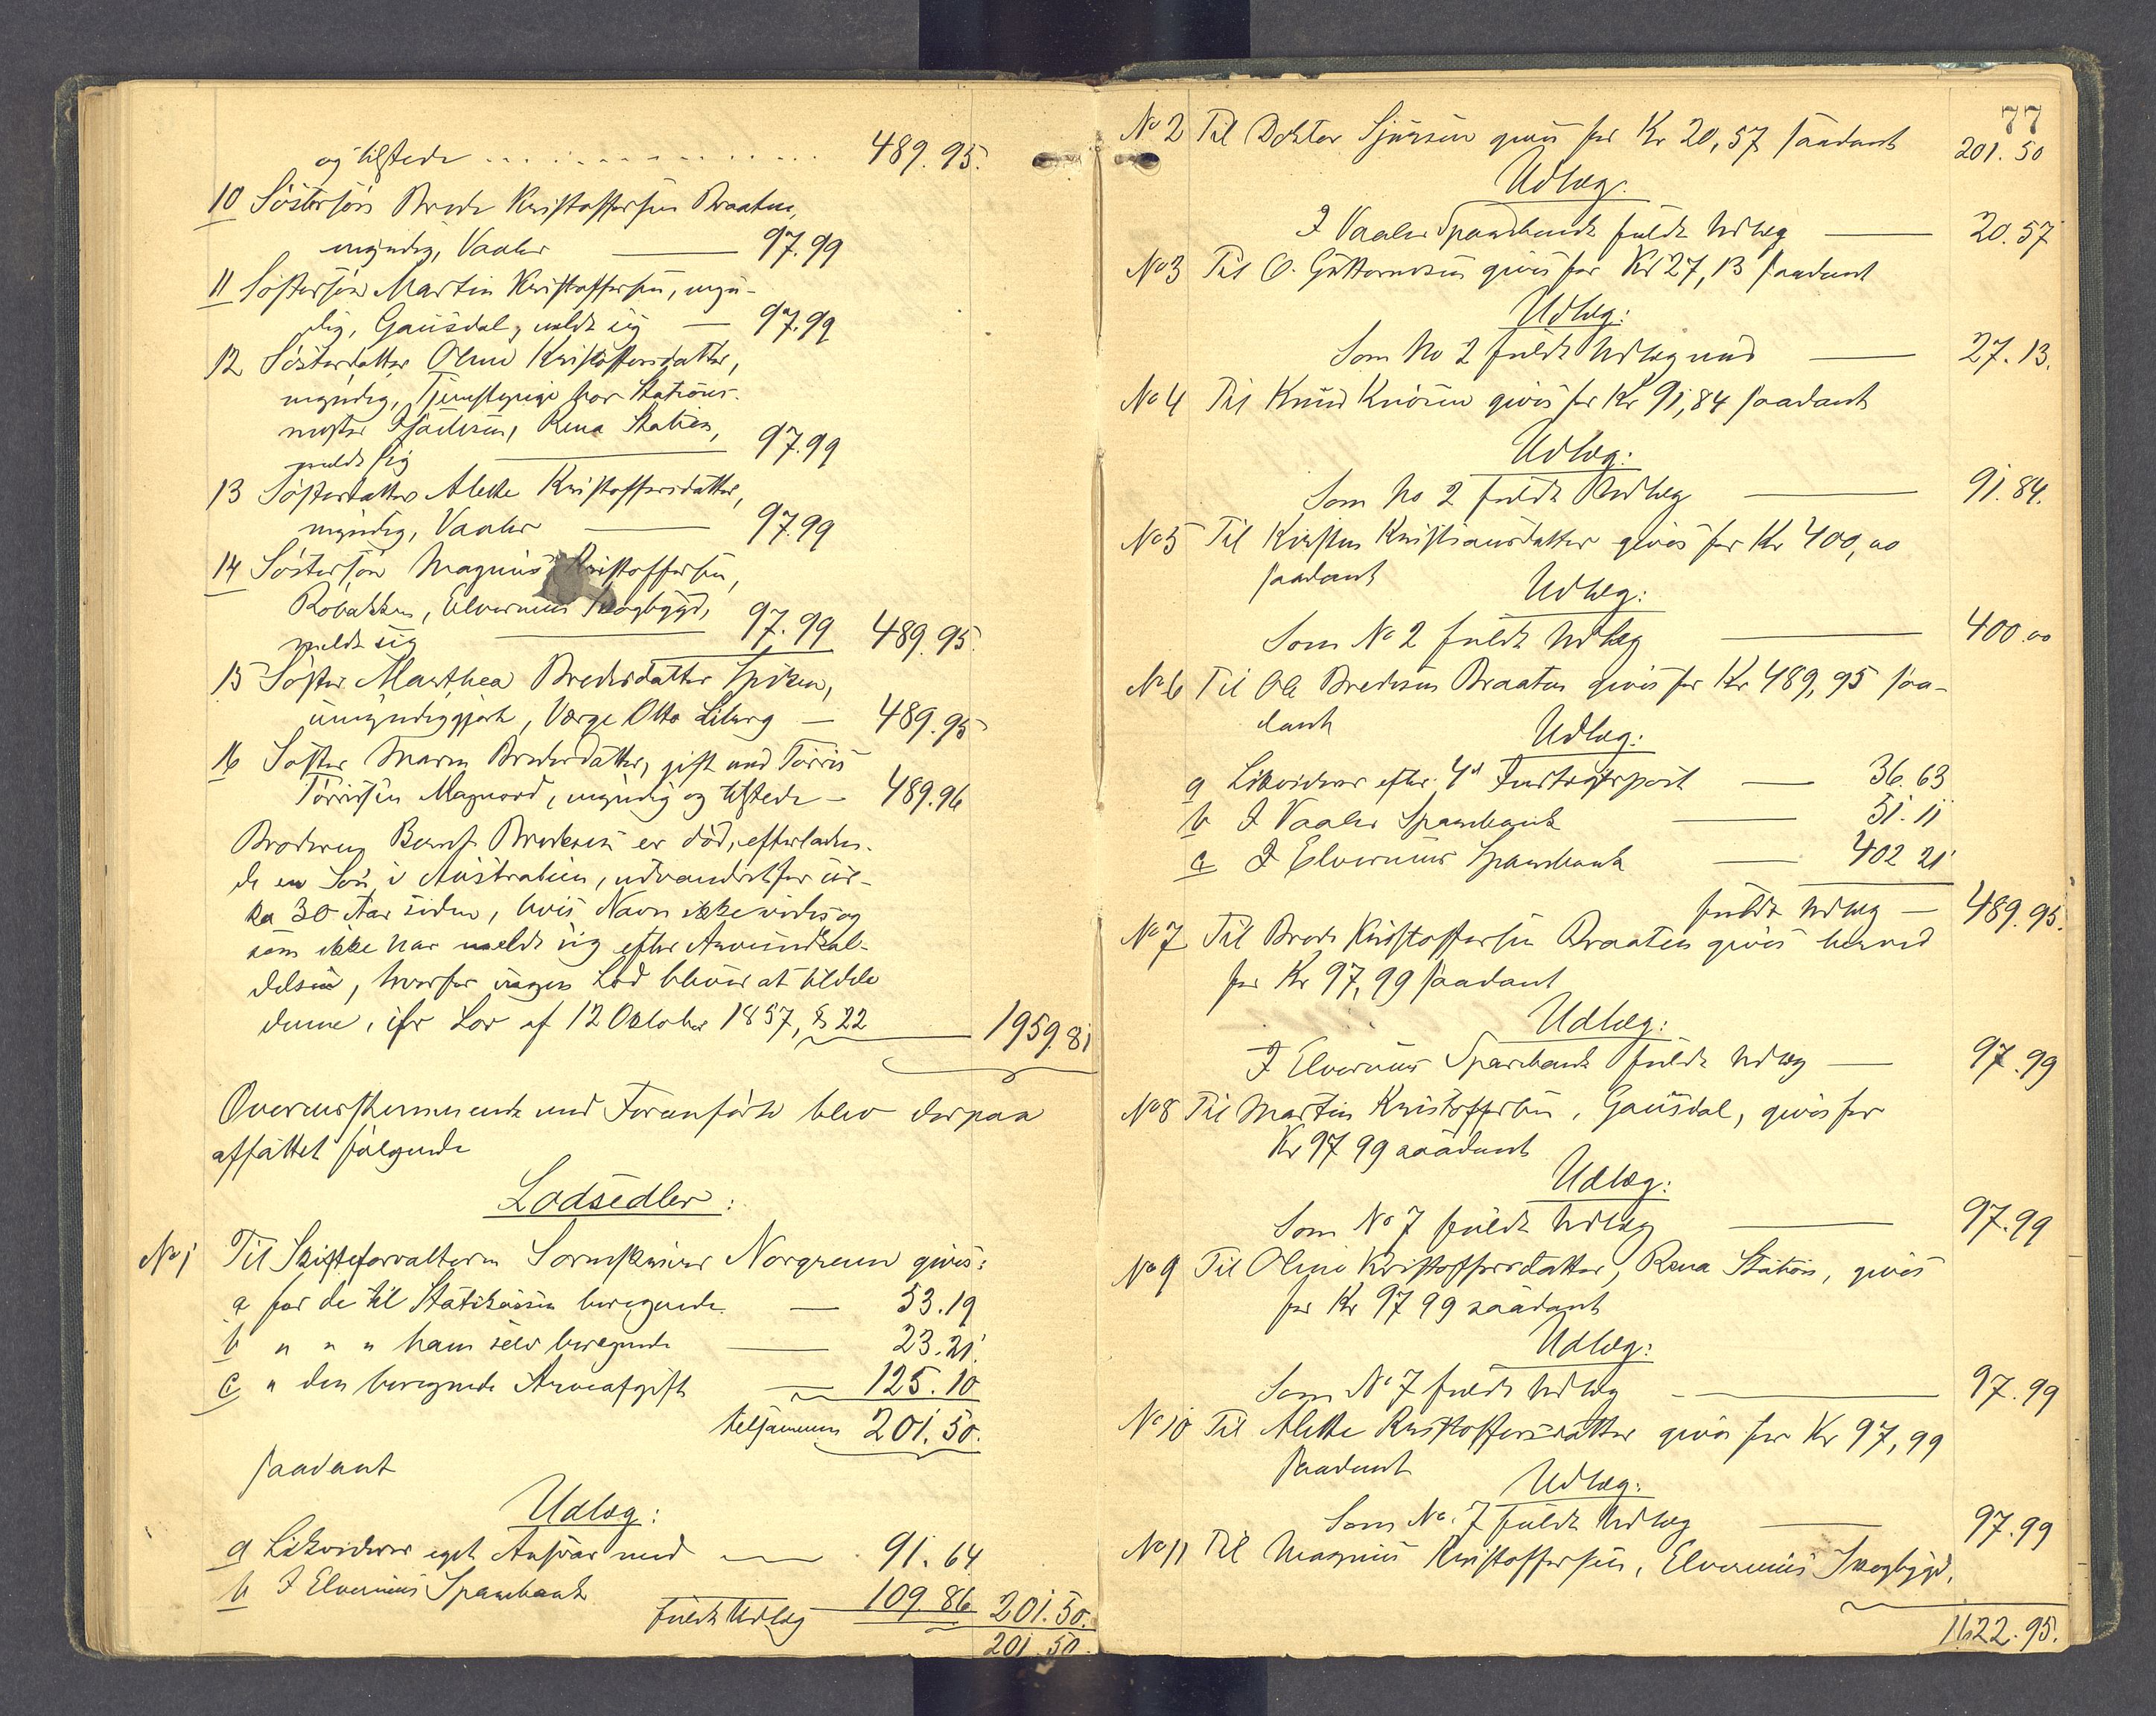 og tilstede . . . . . . . . . . . . . . 489.95.
10 Søstersøn Brede Kristoffersen Braaten,
myndig, Vaaler — 97.99
11 Søstersøn Martin Kristoffersen, myn-
dig, Gausdal, meldt sig — 97.99
12 Søsterdatter Oline Kristoffersdatter,
myndig, Tjenstepige hos Stations-
mester Rena Station,
meldt sig — 97.99
13 Søsterdatter Alette Kristoffersdatter,
myndig, Vaaler — 97.99
14 Søstersøn Magnus Kristoffersen,
Robakken, Elverums Skogbygd,
meldt sig — 97.99 489.95.
15 Søster Marthea Bredesdatter Spiken,
umyndiggjort, Værge Otto Liberg — 489.95
16 Søster Maren Bredesdatter, gift med Tørris
Tørrissen Magnord, myndig og tilstede — 489.96
Broderen Bernt Bredesen er død, efterladen-
de en Søn i Australien, udvandret for cir-
ka 30 Aar siden, hvis Navn ikke vides og
som ikke har meldt sig efter Arveindkal-
delsen, hvorfor ingen Lod bliver at tildele
denne, ifr Lov af 12 Oktober 1857, § 22 — 1959.81
Overensstemmende med Foranførte blev derpaa
affattet følgende
Lodsedler:
No 1 Til Skifteforvalteren Sorenskriver Norgreen gives:
a for de til Statskassen beregnede — 53.19
b " " " ham selv beregnede — 23.21.
c " den beregnede Arveafgift — 125.10
tilsammen 201.50.
saadant
Udlæg:
a Likviderer eget Ansvar med — 91.64
b I Elverums Sparebank 109.86 201.50.
fuldt Udlæg
201.50.
77
No 2 Til Doktor Sjursen gives for Kr 20,57 saadant 201.50
Udlæg:
I Vaaler Sparebank fuldt Udlæg — 20.57
No 3 Til O. Guttormsen gives for Kr 27,13 saadant
Udlæg:
Som No 2 fuldt Udlæg med — 27.13.
No 4 Til Knud Knudsen gives for Kr 91,84 saadant
Udlæg:
Som No 2 fuldt Udlæg — 91.84.
No 5 Til Kirsten Kristiansdatter gives for Kr 400,00
saadant
Udlæg:
Som No 2 fuldt Udlæg — 400.00
No 6 Til Ole Bredesen Braaten gives for Kr 489,95 saa-
dant
Udlæg:
a Likviderer efter 4d Indtægtspost — 36.63
b I Vaaler Sparebank — 51.11
c I Elverums Sparebank — 402 21
fuldt Udlæg — 489.95.
No 7 Til Brede Kristoffersen Braaten gives herved
for Kr 97,99 saadant
Udlæg:
I Elverums Sparebank fuldt Udlæg — 97.99
No 8 Til Martin Kristoffersen, Gausdal, gives for
Kr 97 99 saadant
Udlæg:
Som No 7 fuldt Udlæg — 97.99
No 9 Til Oline Kristoffersdatter, Rena Station, gives
for Kr 97 99 saadant
Udlæg:
Som No 7 fuldt Udlæg — 97.99
No 10 Til Alette Kristoffersdatter gives for Kr 97,99
saadant
Udlæg:
Som No. 7 fuldt Udlæg — 97.99
No 11 Til Magnus Kristoffersen, Elverums Skogbygd,
1622.95.